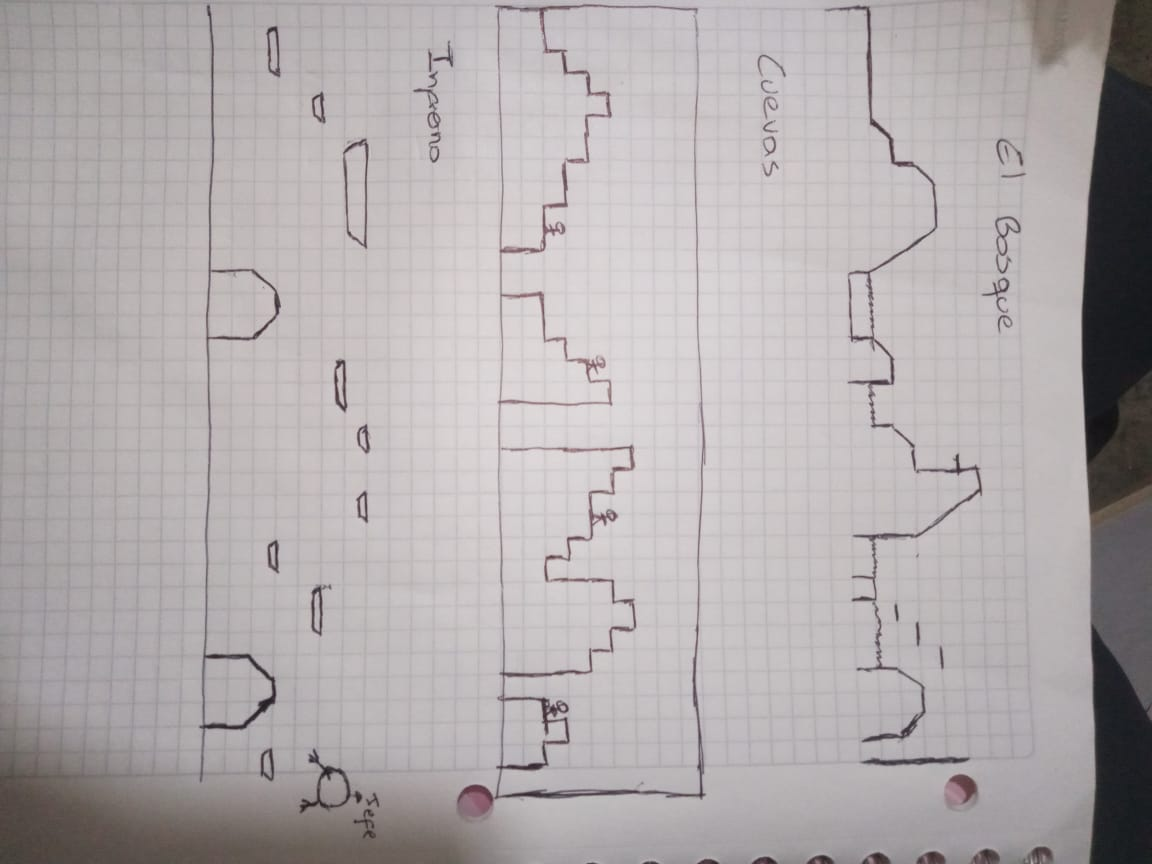 El Bosque
Cuevas
Infierno
Jefe